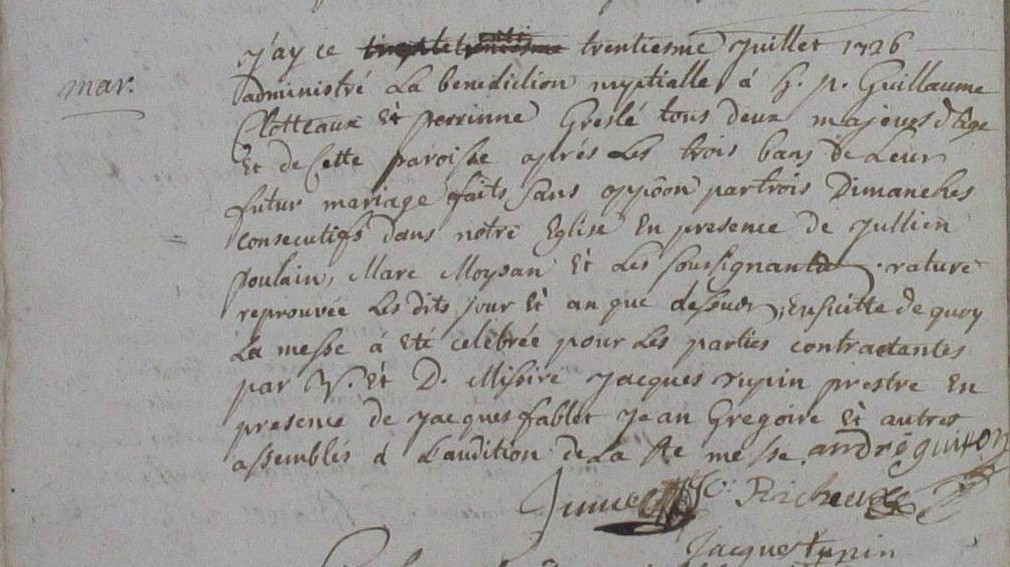 mar.
j'ay ce trentiesme juillet 1726
administré La benediction nuptialle á h. p. Guillaume
Clotteaux Et perrinne Greslé tous deux majeurs d'age
Et de Cette paroisse aprés Les trois bans de Leur
futur mariage faits sans oppôon par trois Dimanches
consecutifs dans notre Eglise En presence de jullien
poulain, Marc Moysan Et Les soussignants . rature
reprouvée Les dits jour Et an que dessus ; ensuitte de quoy
La messe á Eté célébrée pour Les parties contractantes
par V. Et D. Missire jacques tupin prestre En
presence de jacques fablet jean Gregoire Et autres
assemblés á L'audition de La Ste messe. andré guiton
jacques tupin